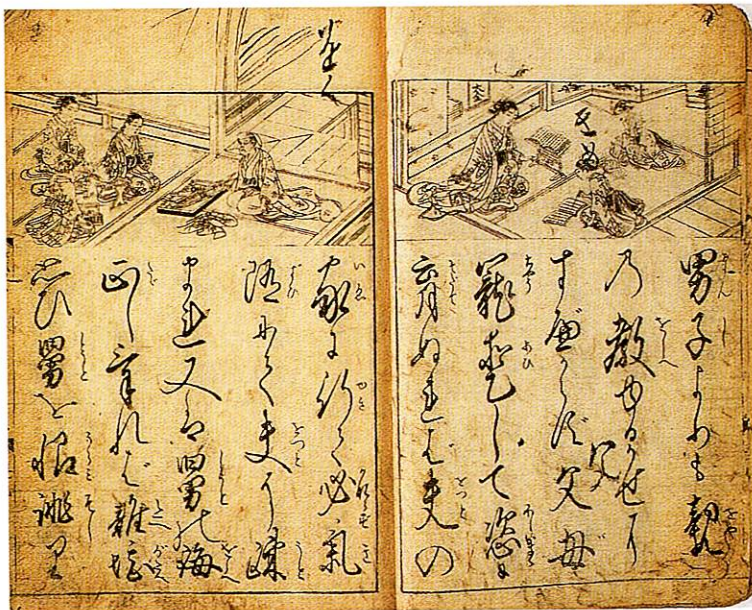 男子よりも親
乃教ゆるかせに
すべからず父母
寵愛して恣に
育ぬれば夫の
家に行て必気
随にて夫に疎
まれ又は舅の誨
正しければ難堪
思ひ舅を恨誹り